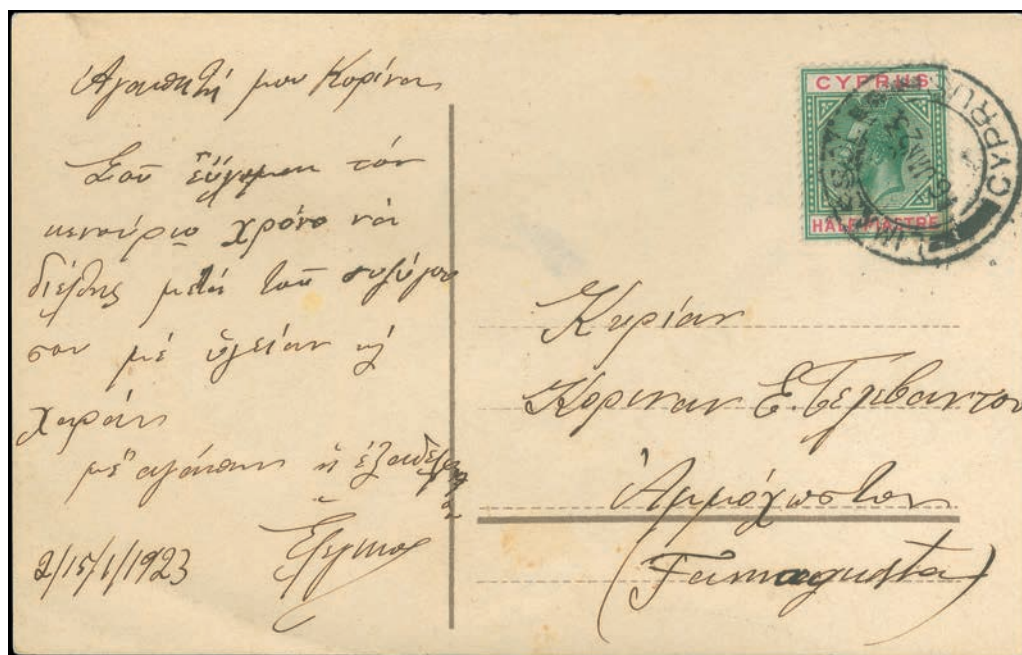 Ἀγαπητή μου Κορίνα
Σοῦ εὔχομαι τόν
κενούριο χρόνο νά
διέλθῃς μετά τοῦ συζύγου
σου μέ ὑγείαν κ
χαράν
μέ ἀγάπην ἡ ἐξαδέλφη
2/15/1/1923
CYPRUS
HALF PIASTRE
CYPRUS
Κυρίαν
Κοριναν Ε. Τελεβαντου
Ἀμμόχωστον
(Famagusta)